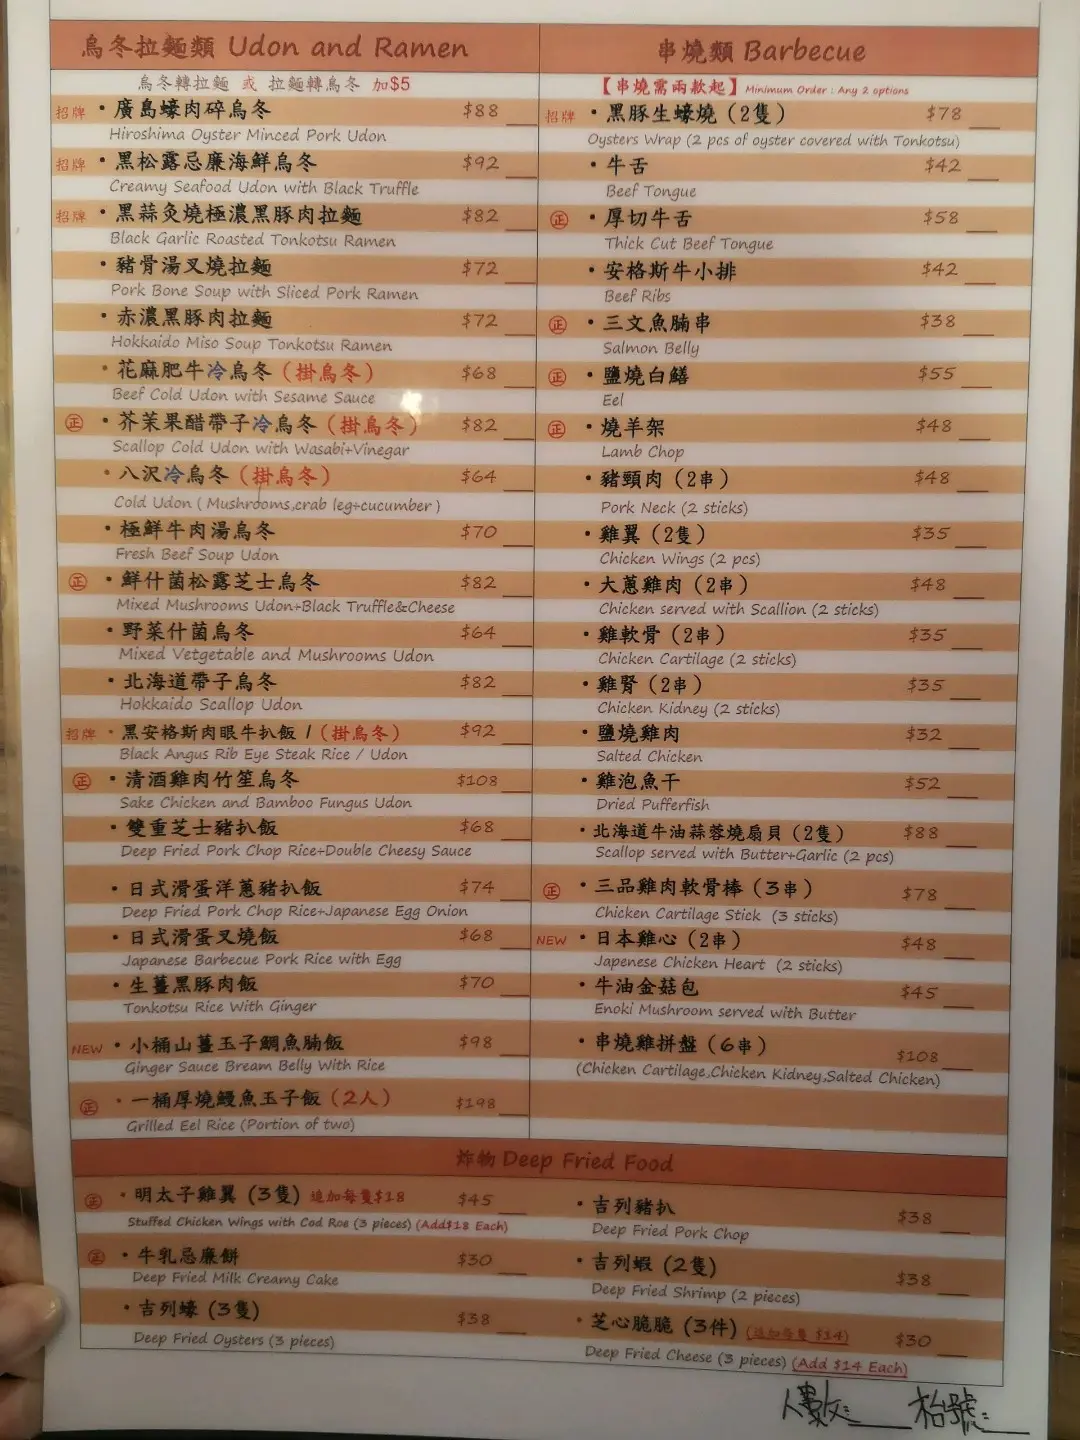 烏冬拉麵類 Udon and Ramen
烏冬轉拉麵 或 拉麵轉烏冬 加$5
招牌 • 廣島蠔肉碎烏冬 $88
Hiroshima Oyster Minced Pork Udon
招牌 • 黑松露忌廉海鮮烏冬 $92
Creamy Seafood Udon with Black Truffle
招牌 • 黑蒜灸燒極濃黑豚肉拉麵 $82
Black Garlic Roasted Tonkotsu Ramen
• 豬骨湯叉燒拉麵 $72
Pork Bone Soup with Sliced Pork Ramen
• 赤濃黑豚肉拉麵 $72
Hokkaido Miso Soup Tonkotsu Ramen
• 花麻肥牛冷烏冬（掛烏冬） $68
Beef Cold Udon with Sesame Sauce
正 • 芥茉果醋帶子冷烏冬（掛烏冬） $82
Scallop Cold Udon with Wasabi+Vinegar
• 八沢冷烏冬（掛烏冬） $64
Cold Udon ( Mushrooms,crab leg+cucumber )
• 極鮮牛肉湯烏冬 $70
Fresh Beef Soup Udon
正 • 鮮什菌松露芝士烏冬 $82
Mixed Mushrooms Udon+Black Truffle&Cheese
• 野菜什菌烏冬 $64
Mixed Vetgetable and Mushrooms Udon
• 北海道帶子烏冬 $82
Hokkaido Scallop Udon
招牌 • 黑安格斯肉眼牛扒飯 /（掛烏冬） $92
Black Angus Rib Eye Steak Rice / Udon
正 • 清酒雞肉竹笙烏冬 $108
Sake Chicken and Bamboo Fungus Udon
• 雙重芝士豬扒飯 $68
Deep Fried Pork Chop Rice+Double Cheesy Sauce
• 日式滑蛋洋蔥豬扒飯 $74
Deep Fried Pork Chop Rice+Japanese Egg Onion
• 日式滑蛋叉燒飯 $68
Japanese Barbecue Pork Rice with Egg
• 生薑黑豚肉飯 $70
Tonkotsu Rice With Ginger
NEW • 小桶山薑玉子鯛魚腩飯 $98
Ginger Sauce Bream Belly With Rice
正 • 一桶厚燒鰻魚玉子飯（2人） $198
Grilled Eel Rice (Portion of two)
串燒類 Barbecue
【串燒需兩款起】Minimum Order : Any 2 options
招牌 • 黑豚生蠔燒（2隻） $78
Oysters Wrap (2 pcs of oyster covered with Tonkotsu)
• 牛舌 $42
Beef Tongue
正 • 厚切牛舌 $58
Thick Cut Beef Tongue
• 安格斯牛小排 $42
Beef Ribs
正 • 三文魚腩串 $38
Salmon Belly
正 • 鹽燒白鱔 $55
Eel
正 • 燒羊架 $48
Lamb Chop
• 豬頸肉（2串） $48
Pork Neck (2 sticks)
• 雞翼（2隻） $35
Chicken Wings (2 pcs)
• 大蔥雞肉（2串） $48
Chicken served with Scallion (2 sticks)
• 雞軟骨（2串） $35
Chicken Cartilage (2 sticks)
• 雞腎（2串） $35
Chicken Kidney (2 sticks)
• 鹽燒雞肉 $32
Salted Chicken
• 雞泡魚干 $52
Dried Pufferfish
• 北海道牛油蒜蓉燒扇貝（2隻） $88
Scallop served with Butter+Garlic (2 pcs)
正 • 三品雞肉軟骨棒（3串） $78
Chicken Cartilage Stick (3 sticks)
NEW • 日本雞心（2串） $48
Japenese Chicken Heart (2 sticks)
• 牛油金菇包 $45
Enoki Mushroom served with Butter
• 串燒雞拼盤（6串） $108
(Chicken Cartilage,Chicken Kidney,Salted Chicken)
炸物 Deep Fried Food
正 • 明太子雞翼（3隻）追加每隻$18 $45
Stuffed Chicken Wings with Cod Roe (3 pieces) (Add$18 Each)
正 • 牛乳忌廉餅 $30
Deep Fried Milk Creamy Cake
• 吉列蠔（3隻） $38
Deep Fried Oysters (3 pieces)
• 吉列豬扒 $38
Deep Fried Pork Chop
• 吉列蝦（2隻） $38
Deep Fried Shrimp (2 pieces)
• 芝心脆脆（3件）(追加每隻 $14) $30
Deep Fried Cheese (3 pieces) (Add $14 Each)
人數: 枱號: